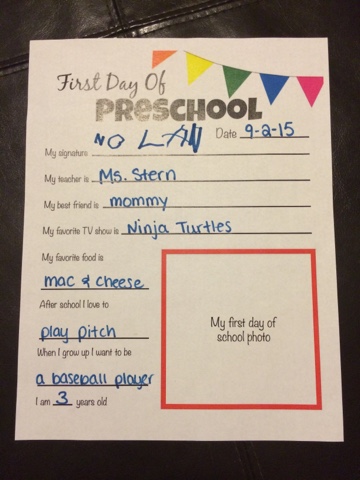 First Day Of
PRESCHOOL
NOLAN
Date 9-2-15
My signature
My teacher is Ms. Stern
My best friend is mommy
My favorite TV show is Ninja Turtles
My favorite food is
mac & cheese
After school I love to
play pitch
When I grow up I want to be
a baseball player
I am 3 years old
My first day of
school photo